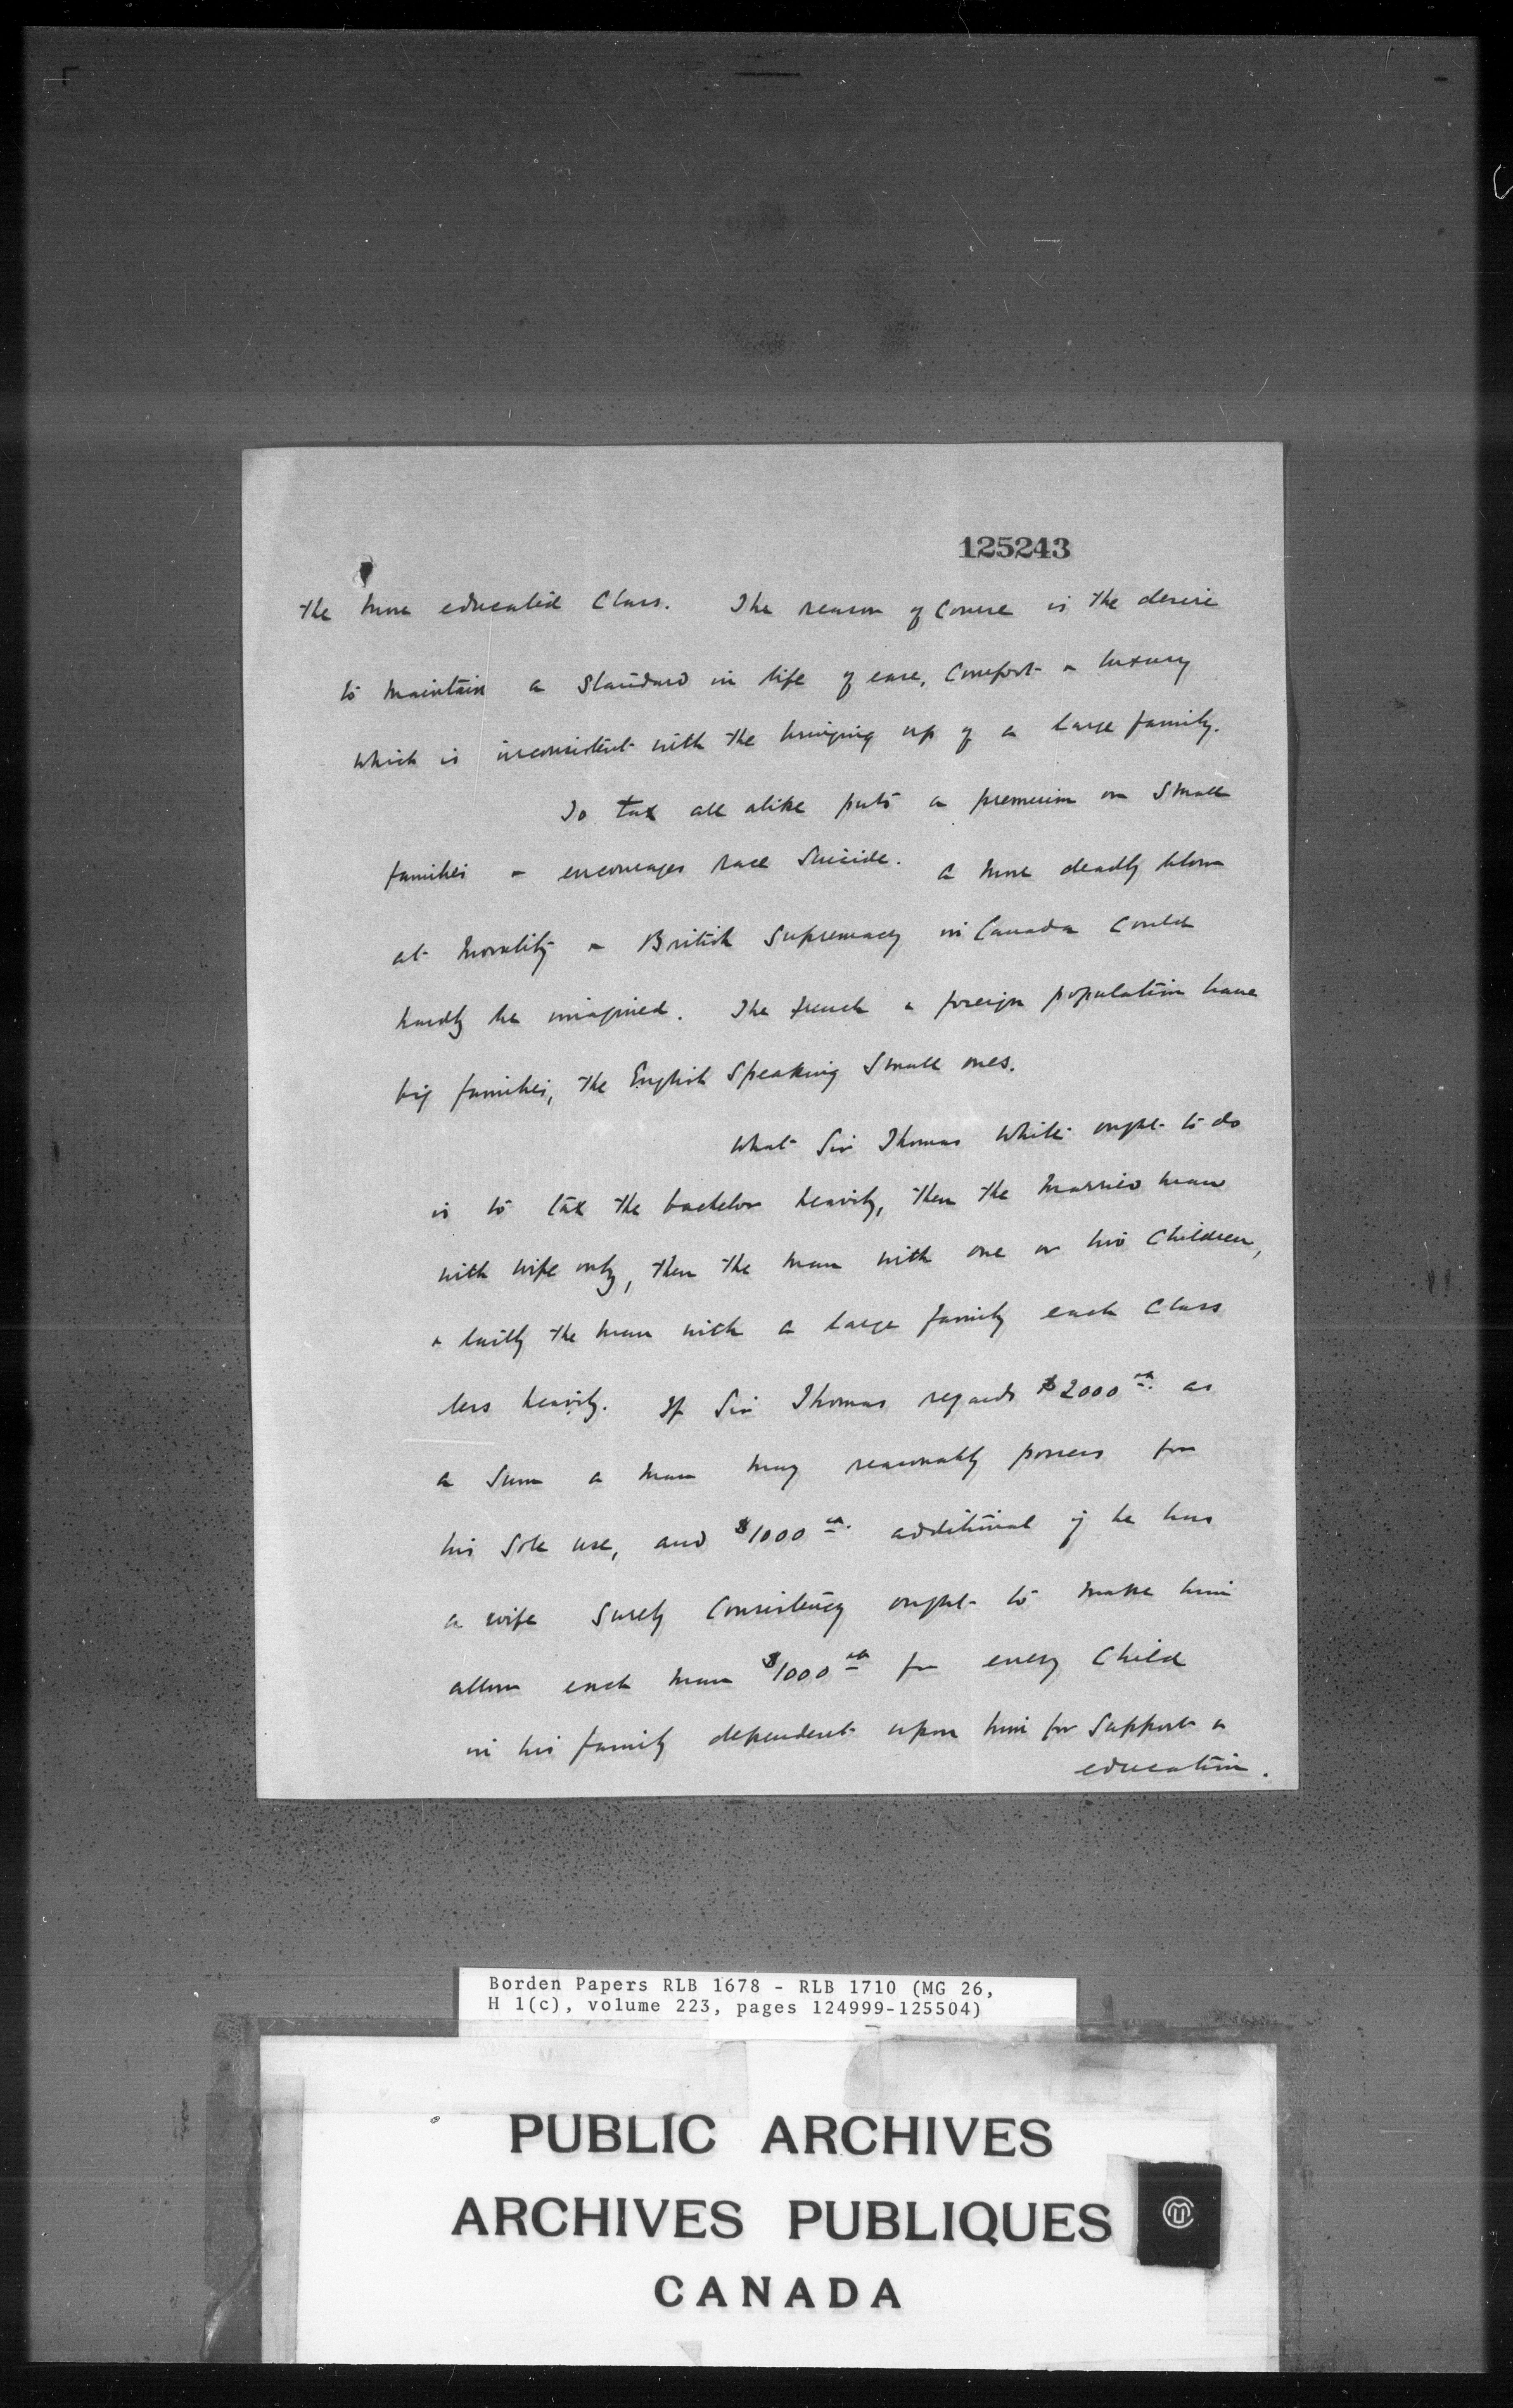 125243
the more educated class. The reason of course is the desire
to maintain a standard in life of ease, comfort & luxury
which is inconsistent with the bringing up of a large family.
To tax all alike puts a premium on small
families & encourages race suicide. A more deadly blow
at morality & British supremacy in Canada could
hardly be imagined. The French & foreign population have
big families, the English speaking small ones.
What Sir Thomas White ought to do
is to tax the bachelor heavily, then the married man
with wife only, then the man with one or two children,
& lastly the man with a large family each class
less heavily. If Sir Thomas regards $2000 as
a sum a man may reasonably possess for
his sole use, and $1000 additional if he has
a wife surely consistency ought to make him
allow each man $1000 for every child
in his family dependent upon him for support &
education.
Borden Papers RLB 1678 - RLB 1710 (MG 26,
H 1(c), volume 223, pages 124999-125504)
PUBLIC ARCHIVES
ARCHIVES PUBLIQUES
CANADA